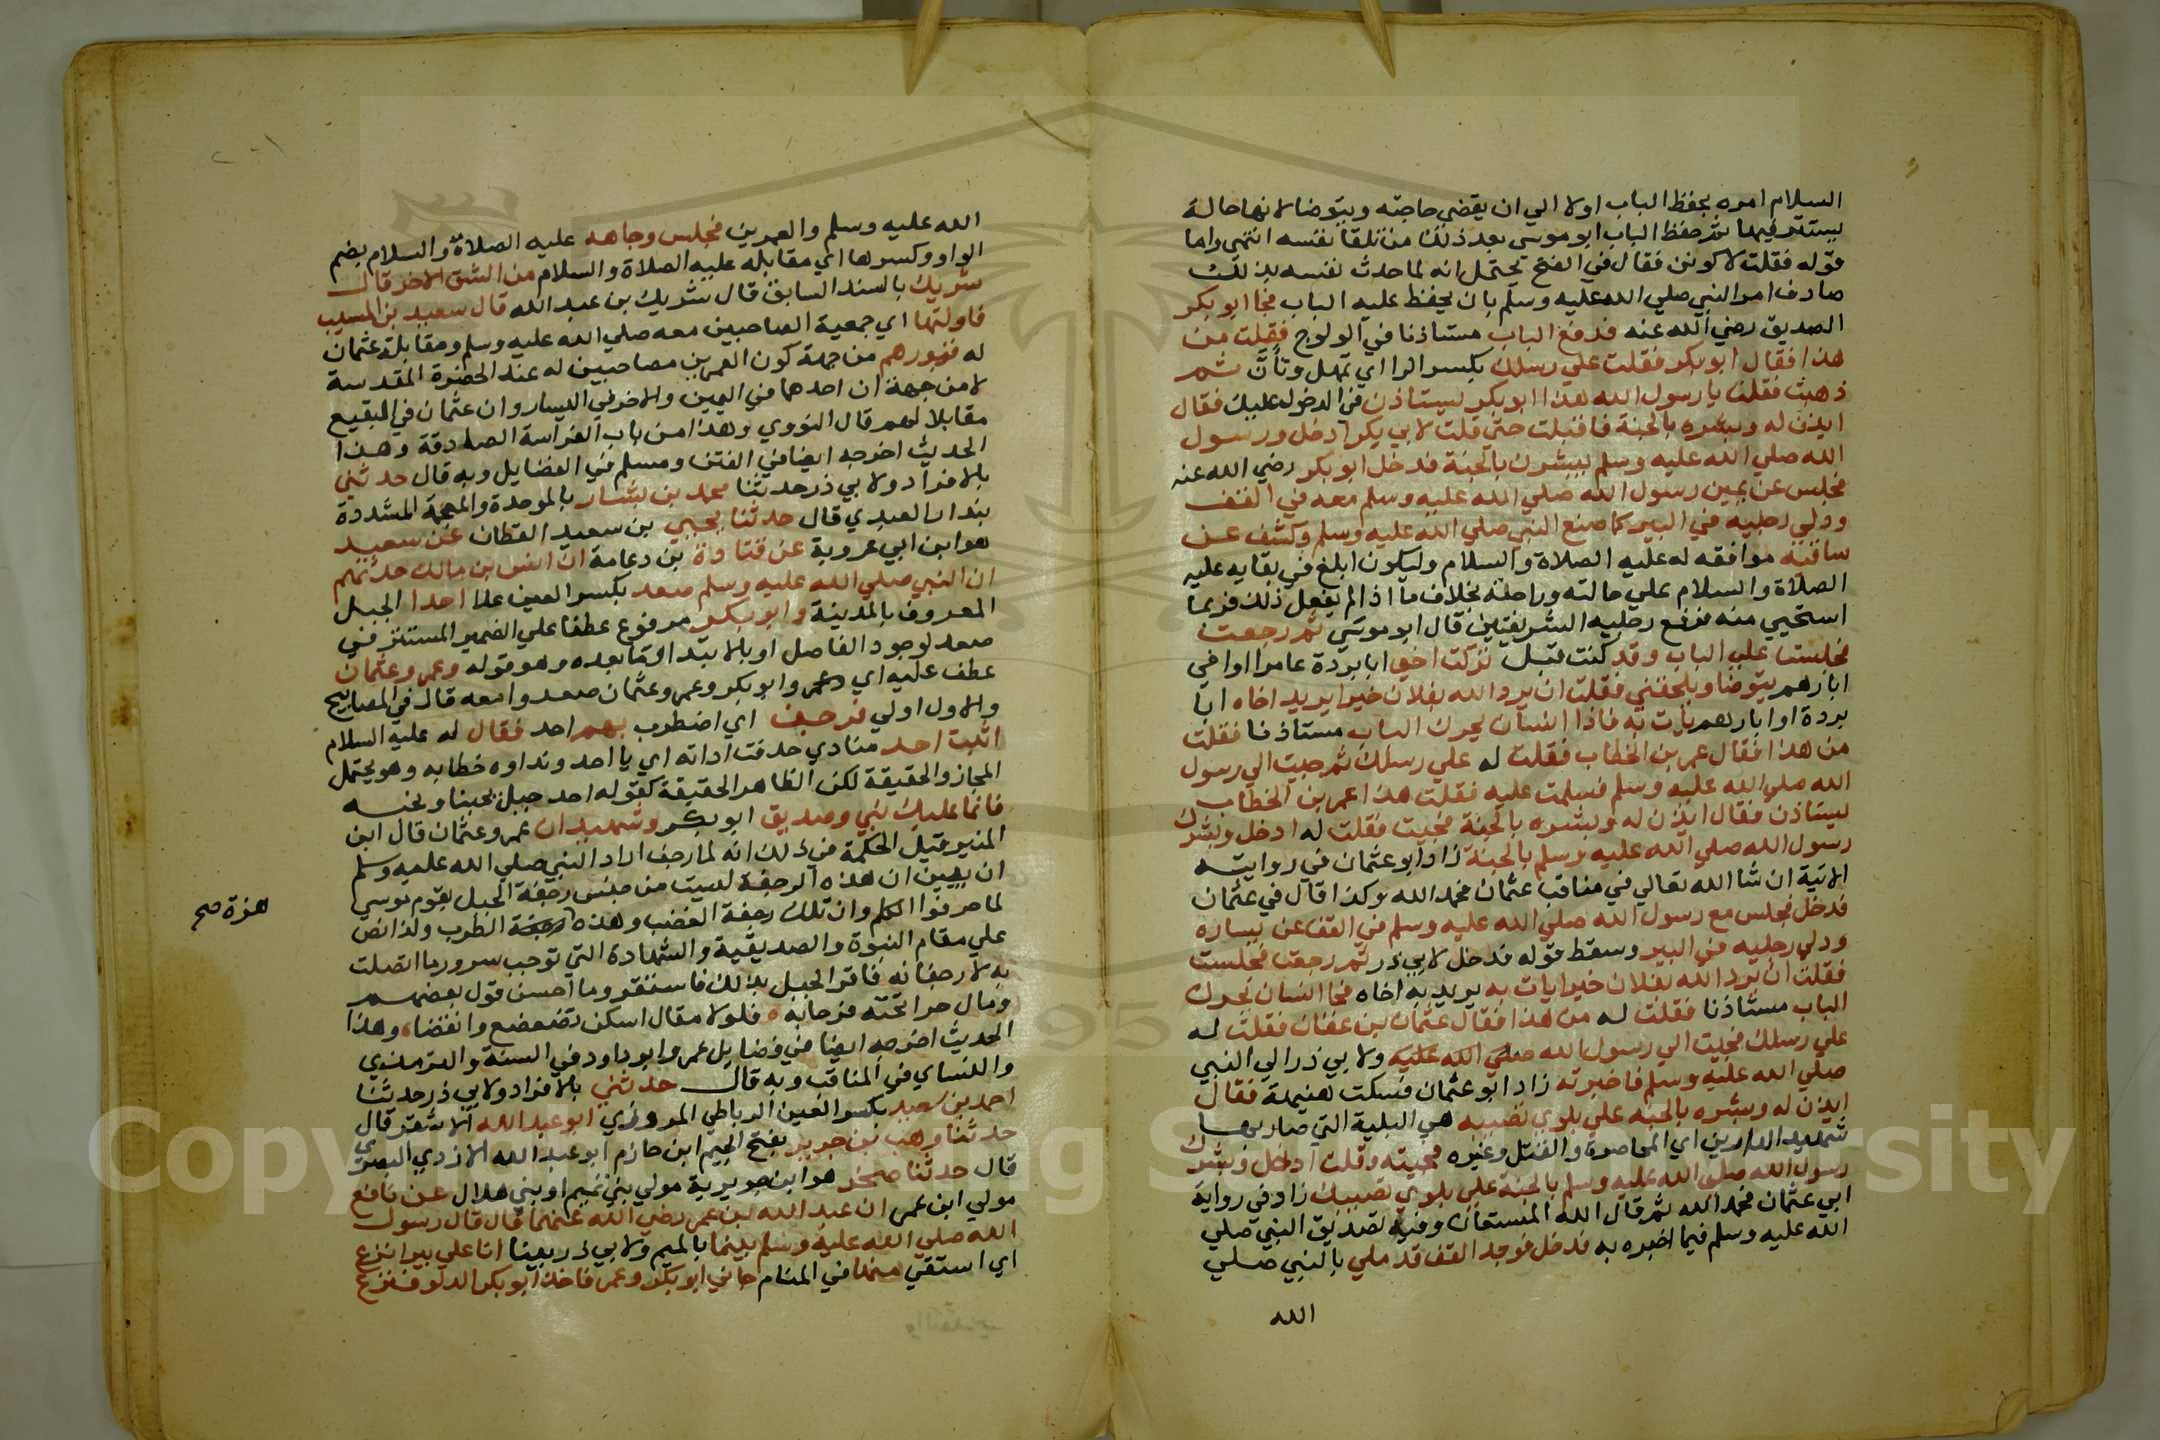 السلام امره بحفظ الباب اولا الي ان يقضي حاجته ويتوضا لانها حالة
يستتر فيها ثم حفظ الباب ابو موسي بعد ذلك من تلقا نفسه انتهي واما
قوله فقلت لاكونن فقال في الفتح يحتمل انه لما حدث نفسه بذلك
صادف امر النبي صلي الله عليه وسلم بان يحفظ عليه الباب فجا ابو بكر
الصديق رضي الله عنه فدفع الباب مستاذنا في الولوج فقلت من
هذا فقال ابو بكر فقلت علي رسلك بكسر الرا اي تمهل وتأن ثم
ذهبت فقلت يا رسول الله هذا ابو بكر يستاذن في الدخول عليك فقال
ايذن له وبشره بالجنة فاقبلت حتي قلت لابي بكر ادخل ورسول
الله صلي الله عليه وسلم يبشرك بالجنة فدخل ابو بكر رضي الله عنه
فجلس عن يمين رسول الله صلي الله عليه وسلم معه في القف
ودلي رجليه في البير كما صنع النبي صلي الله عليه وسلم وكشف عن
ساقيه موافقه له عليه الصلاة والسلام وليكون ابلغ في بقايه عليه
الصلاة والسلام علي حالته وراحته بخلاف ما اذا لم يفعل ذلك فربما
استحيي منه فرفع رجليه الشريفتين قال ابو موسي ثم رجعت
فجلست علي الباب وقد كنت قبل تركت اخي ابا بردة عامرا او اخي
ابارهم يتوضا ويلحقني فقلت ان يرد الله بفلان خيرا يريد اخاه ابا
بردة او ابارهم يات به فاذا انسان يحرك الباب مستاذنا فقلت
من هذا فقال عمر بن الخطاب فقلت له علي رسلك ثم جيت الي رسول
الله صلي الله عليه وسلم فسلمت عليه فقلت هذا عمر بن الخطاب
يستاذن فقال ايذن له وبشره بالجنة فجيت فقلت له ادخل وبشرك
رسول الله صلي الله عليه وسلم بالجنة زاد ابو عثمان في روايته
الاتية ان شا الله تعالي في مناقب عثمان فحمد الله وكذا قال في عثمان
فدخل فجلس مع رسول الله صلي الله عليه وسلم في القف عن يساره
ودلي رجليه في البير وسقط قوله فدخل لابي ذر ثم رجعت فجلست
فقلت ان يرد الله بفلان خيرا يات به يريد به اخاه فجا انسان يحرك
الباب مستاذنا فقلت له من هذا فقال عثمان بن عفان فقلت له
علي رسلك فجيت الي رسول الله صلي الله عليه ولابي ذر الي النبي
صلي الله عليه وسلم فاخبرته زاد ابو عثمان فسكت هنيهة فقال
ايذن له وبشره بالجنه علي بلوي تصيبه هي البلية التي صار بها
شهيد الدار من اي المحاصرة والقتل وغيره فجيته وقلت ادخل وبشرك
رسول الله صلي الله عليه وسلم بالجنة علي بلوي تصيبك زاد في رواية
ابي عثمان فحمد الله ثم قال الله المستعان وفيه تصديق النبي صلي
الله عليه وسلم فيما اخبره به فدخل فوجد القف قد ملي بالنبي صلي
الله
الله عليه وسلم والعمرين فجلس وجاهه عليه الصلاة والسلام بضم
الواو وكسرها اي مقابله عليه الصلاة والسلام من الشق الاخر قال
شريك بالسند السابق قال شريك بن عبد الله قال سعيد بن المسيب
فاولتها اي جمعية الصاحبين معه صلي الله عليه وسلم ومقابلة عثمان
له قبورهم من جهة كون العمرين مصاحبين له عند الحضرة المقدسة
لا من جهة ان احدهما في اليمين والاخر في اليسار وان عثمان في البقيع
مقابلا لهم قال النووي وهذا من باب الفراسة الصادقة وهذا
الحديث اخرجه ايضا في الفتن ومسلم في الفضايل وبه قال حدثني
بالافراد ولابي ذر حدثنا محمد بن بشار بالموحدة والمعجمة المشددة
بندار العبدي قال حدثنا يحيي بن سعيد القطان عن سعيد
هو ابن ابي عروبة عن قتادة بن دعامة ان انس بن مالك حدثهم
ان النبي صلي الله عليه وسلم صعد بكسر العين علا احدا الجبل
المعروف بالمدينة وابو بكر مرفوع عطفا علي الضمير المستتر في
صعد لوجود الفاصل او بالابتدا وما بعده وهو قوله وعمر وعثمان
عطف عليه اي وابو بكر وعمر وعثمان صعدوا معه قال في المصابيح
والاول اولي فرجف اي اضطرب بهم احد فقال له عليه السلام
اثبت احد منادي حذفت اداته اي يا احد ونداوه خطابه وهو يحتمل
المجاز والحقيقة لكن الظاهر الحقيقة كقوله احد جبل يحبنا ونحبه
فانما عليك نبي وصديق ابو بكر وشهيدان عمر وعثمان قال ابن
المنير قيل الحكمة في ذلك انه لما رجف اراد النبي صلي الله عليه وسلم
ان يبين ان هذه الرجفة ليست من جنس رجفة الجبل بقوم موسي
لما حرفوا الكلم وان تلك رجفة الغضب وهذه رجفة الطرب ولذا نص
هزة صح
علي مقام النبوة والصديقية والشهادة التي توجب سرور ما اتصلت
به لا رجفانه فاقر الجبل بذلك فاستقر وما احسن قول بعضهم
ومال حرا تحته فرحا به فلولا مقال اسكن تضعضع وانقضا وهذا
الحديث اخرجه ايضا في فضايل عمر وابو داود في السنة والترمذي
والنساي في المناقب وبه قال حدثني بالافراد ولابي ذر حدثنا
احمد بن سعيد بكسر العين الرباطي المروزي ابو عبد الله الاشقر قال
حدثنا وهب بن جرير بفتح الجيم ابن حازم ابو عبد الله الازدي البصري
قال حدثنا صخر هو ابن جويرية مولي بني تميم او بني هلال عن نافع
مولي ابن عمر ان عبد الله بن عمر رضي الله عنهما قال قال رسول
الله صلي الله عليه وسلم بينما بالميم ولابي ذر بينا انا علي بير انزع
اي استقي منها في المنام جاني ابو بكر وعمر فاخذ ابو بكر الدلو فنزع